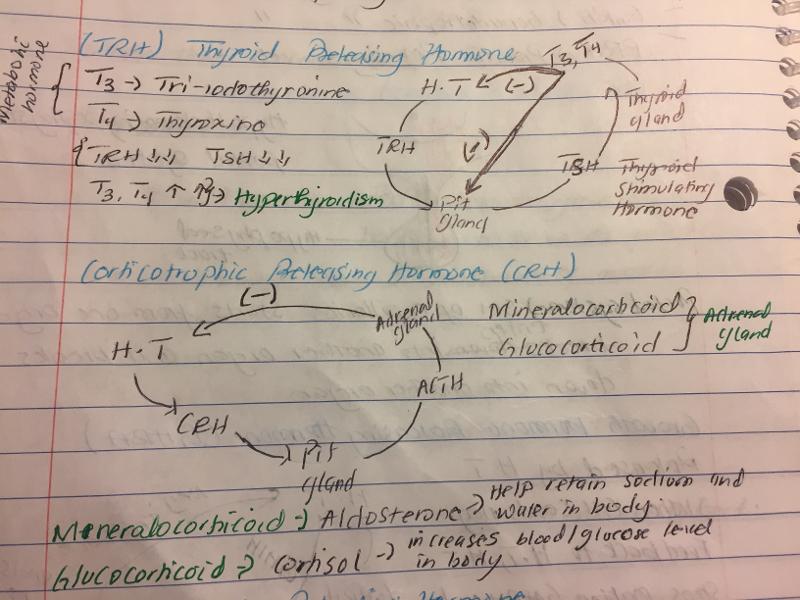 (TRH) Thyroid Releasing Hormone
Metabolic hormone
T3 → Tri-iodothyronine
T4 → Thyroxine
TRH ↓↓ TSH ↓↓
T3, T4 ↑ ↑ → Hyperthyroidism
T3, T4
H.T (-)
TRH
(-)
Pit gland
TSH
Thyroid gland
Thyroid Stimulating Hormone
Corticotrophic Releasing Hormone (CRH)
(-)
Adrenal gland
H.T
ACTH
CRH
Pit gland
Mineralocorticoid
Glucocorticoid
Adrenal gland
Mineralocorticoid → Aldosterone → Help retain sodium and water in body.
Glucocorticoid → Cortisol → increases blood/glucose level in body